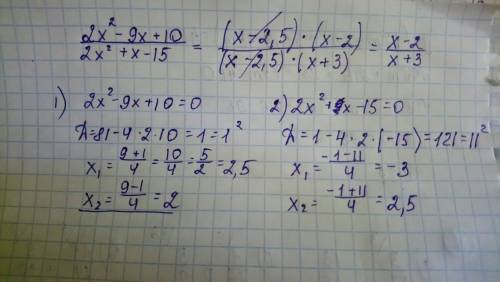 (2x²-9x+10)/(2x²+x-15) = ((x-2,5)·(x-2))/((x-2,5)·(x+3)) = (x-2)/(x+3)
1) 2x²-9x+10=0
Д=81-4·2·10=1=1²
x₁=(9+1)/4=10/4=5/2=2,5
x₂=(9-1)/4=2
2) 2x²+x-15=0
Д=1-4·2·(-15)=121=11²
x₁=(-1-11)/4=-3
x₂=(-1+11)/4=2,5